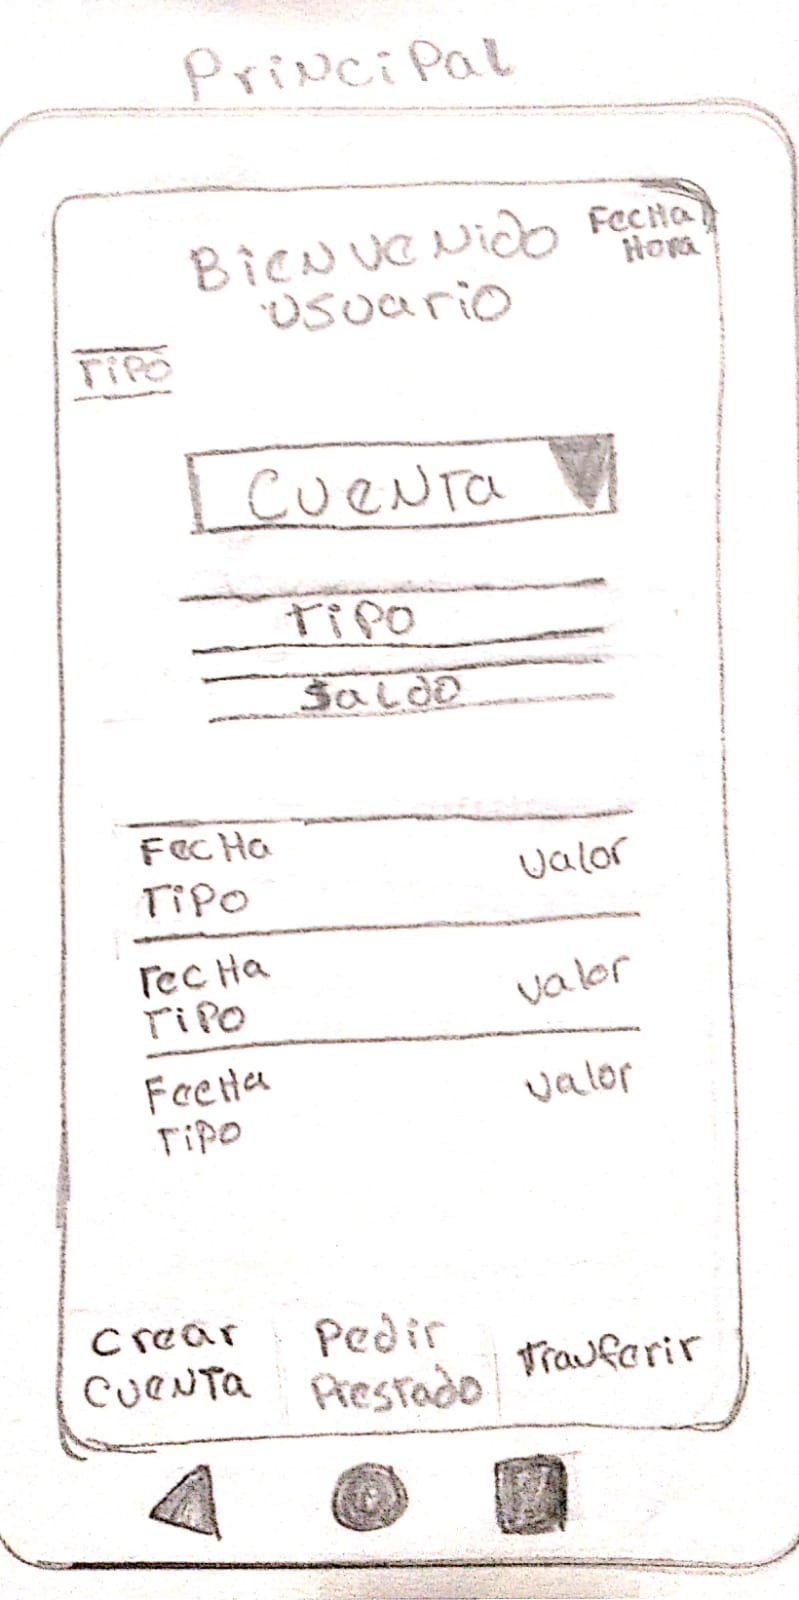 Principal
Fecha
Hora
Bienvenido
usuario
Tipo
Cuenta
Tipo
Saldo
Fecha
valor
Tipo
Fecha
valor
Tipo
Fecha
valor
Tipo
Crear
Cuenta
Pedir
Prestado
Tranferir